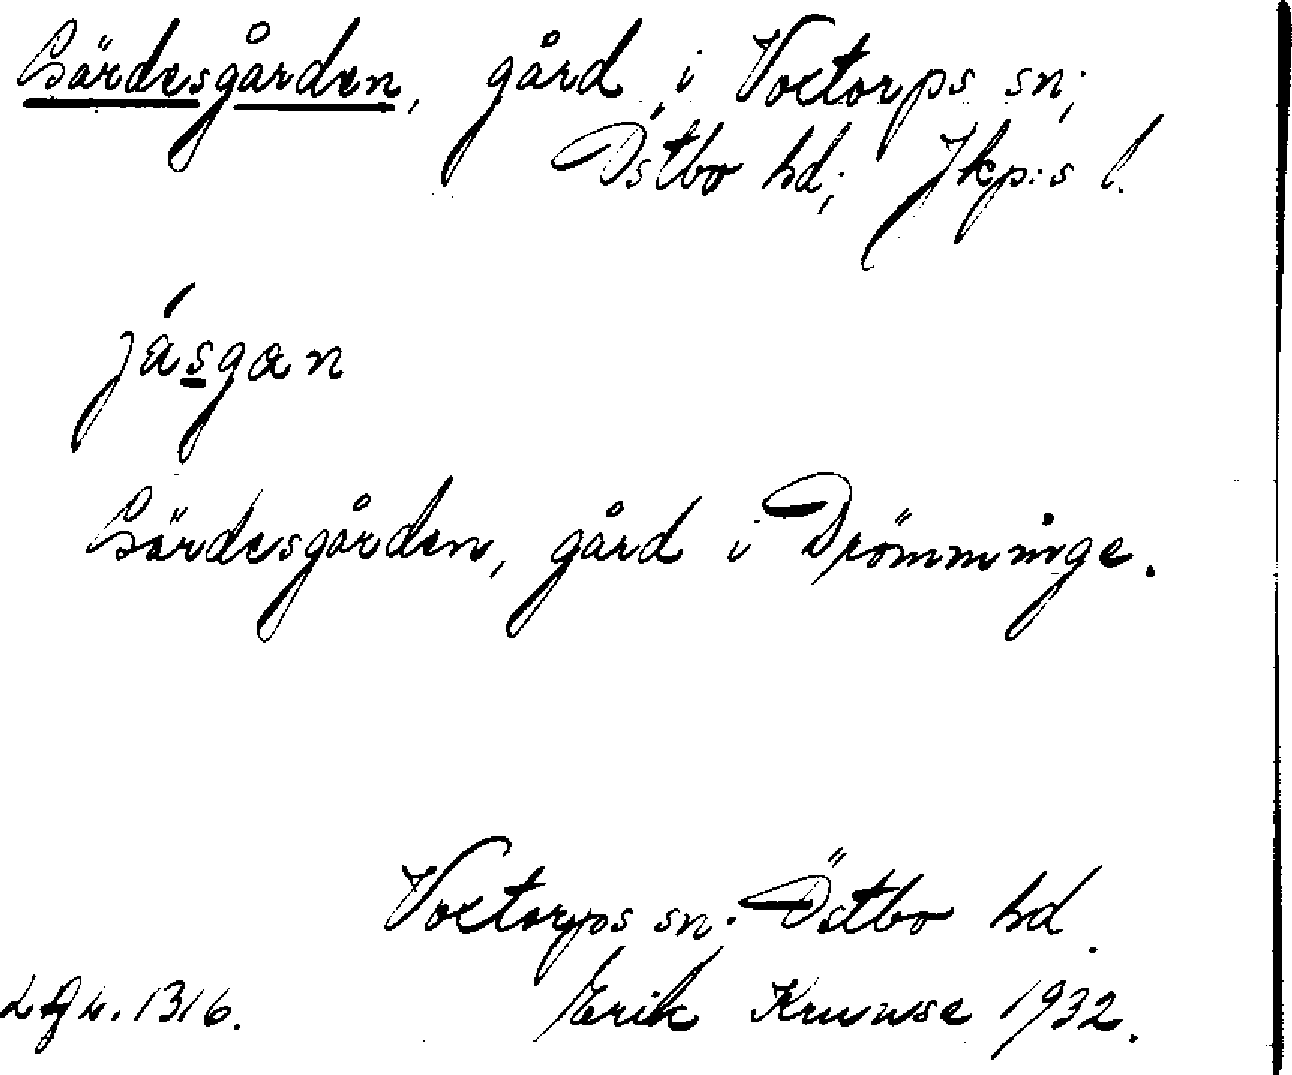 Gärdesgården, gård i Voxtorps sn;
Östbo hd; Jkp:s l.
jásgan
Gärdesgården, gård i Drömminge.
Voxtorps sn. Östbo hd.
1316. Erik Kruuse 1932.